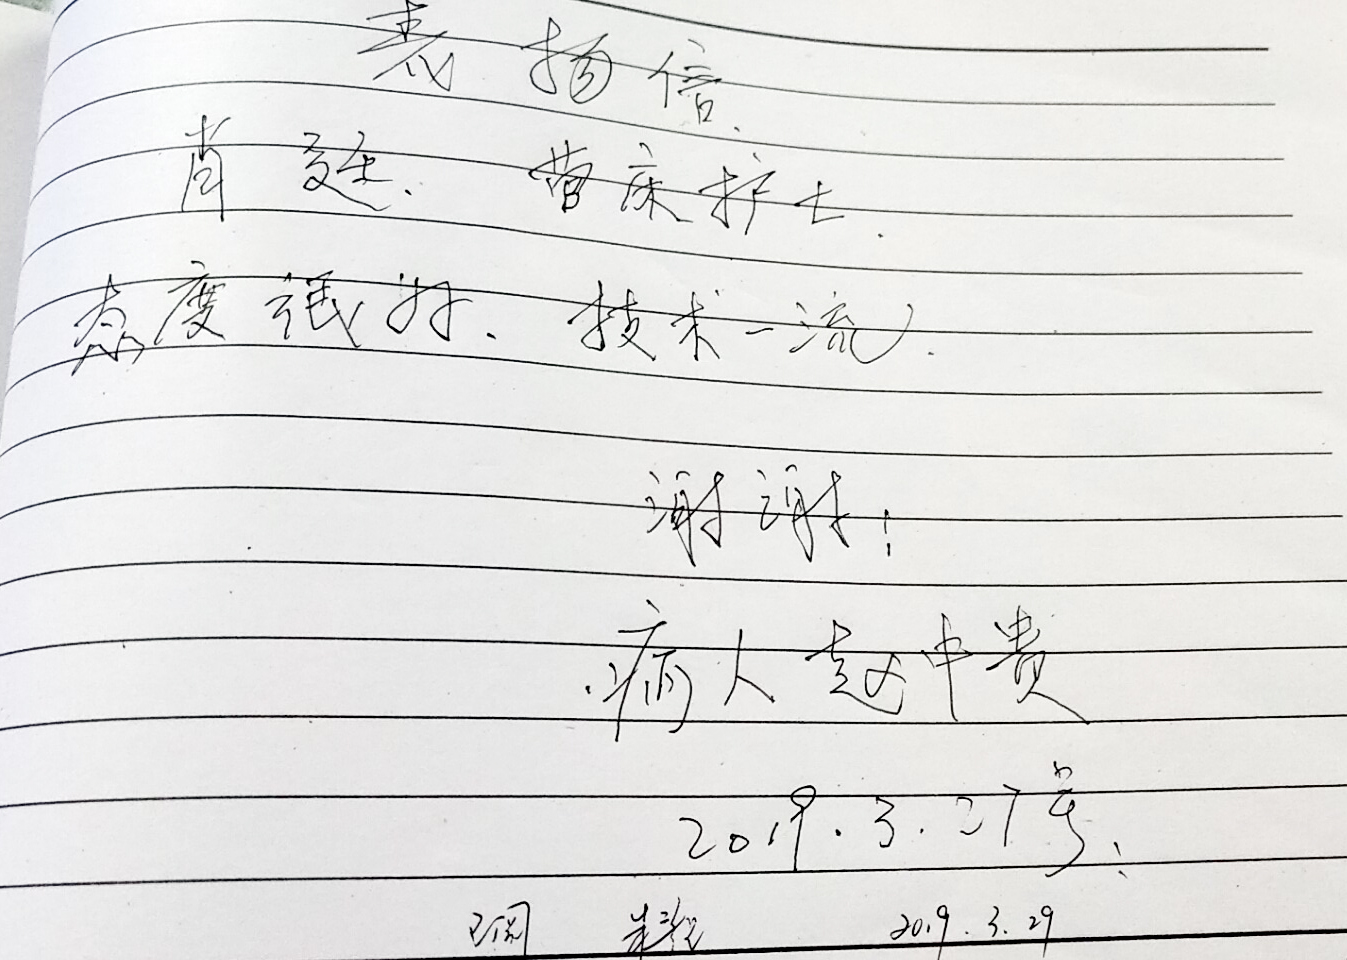 表扬信.
肖廷. 管床护士.
态度很好、技术一流.
谢谢!
病人赵中贵
2019.3.27号.
已阅 2019.3.29